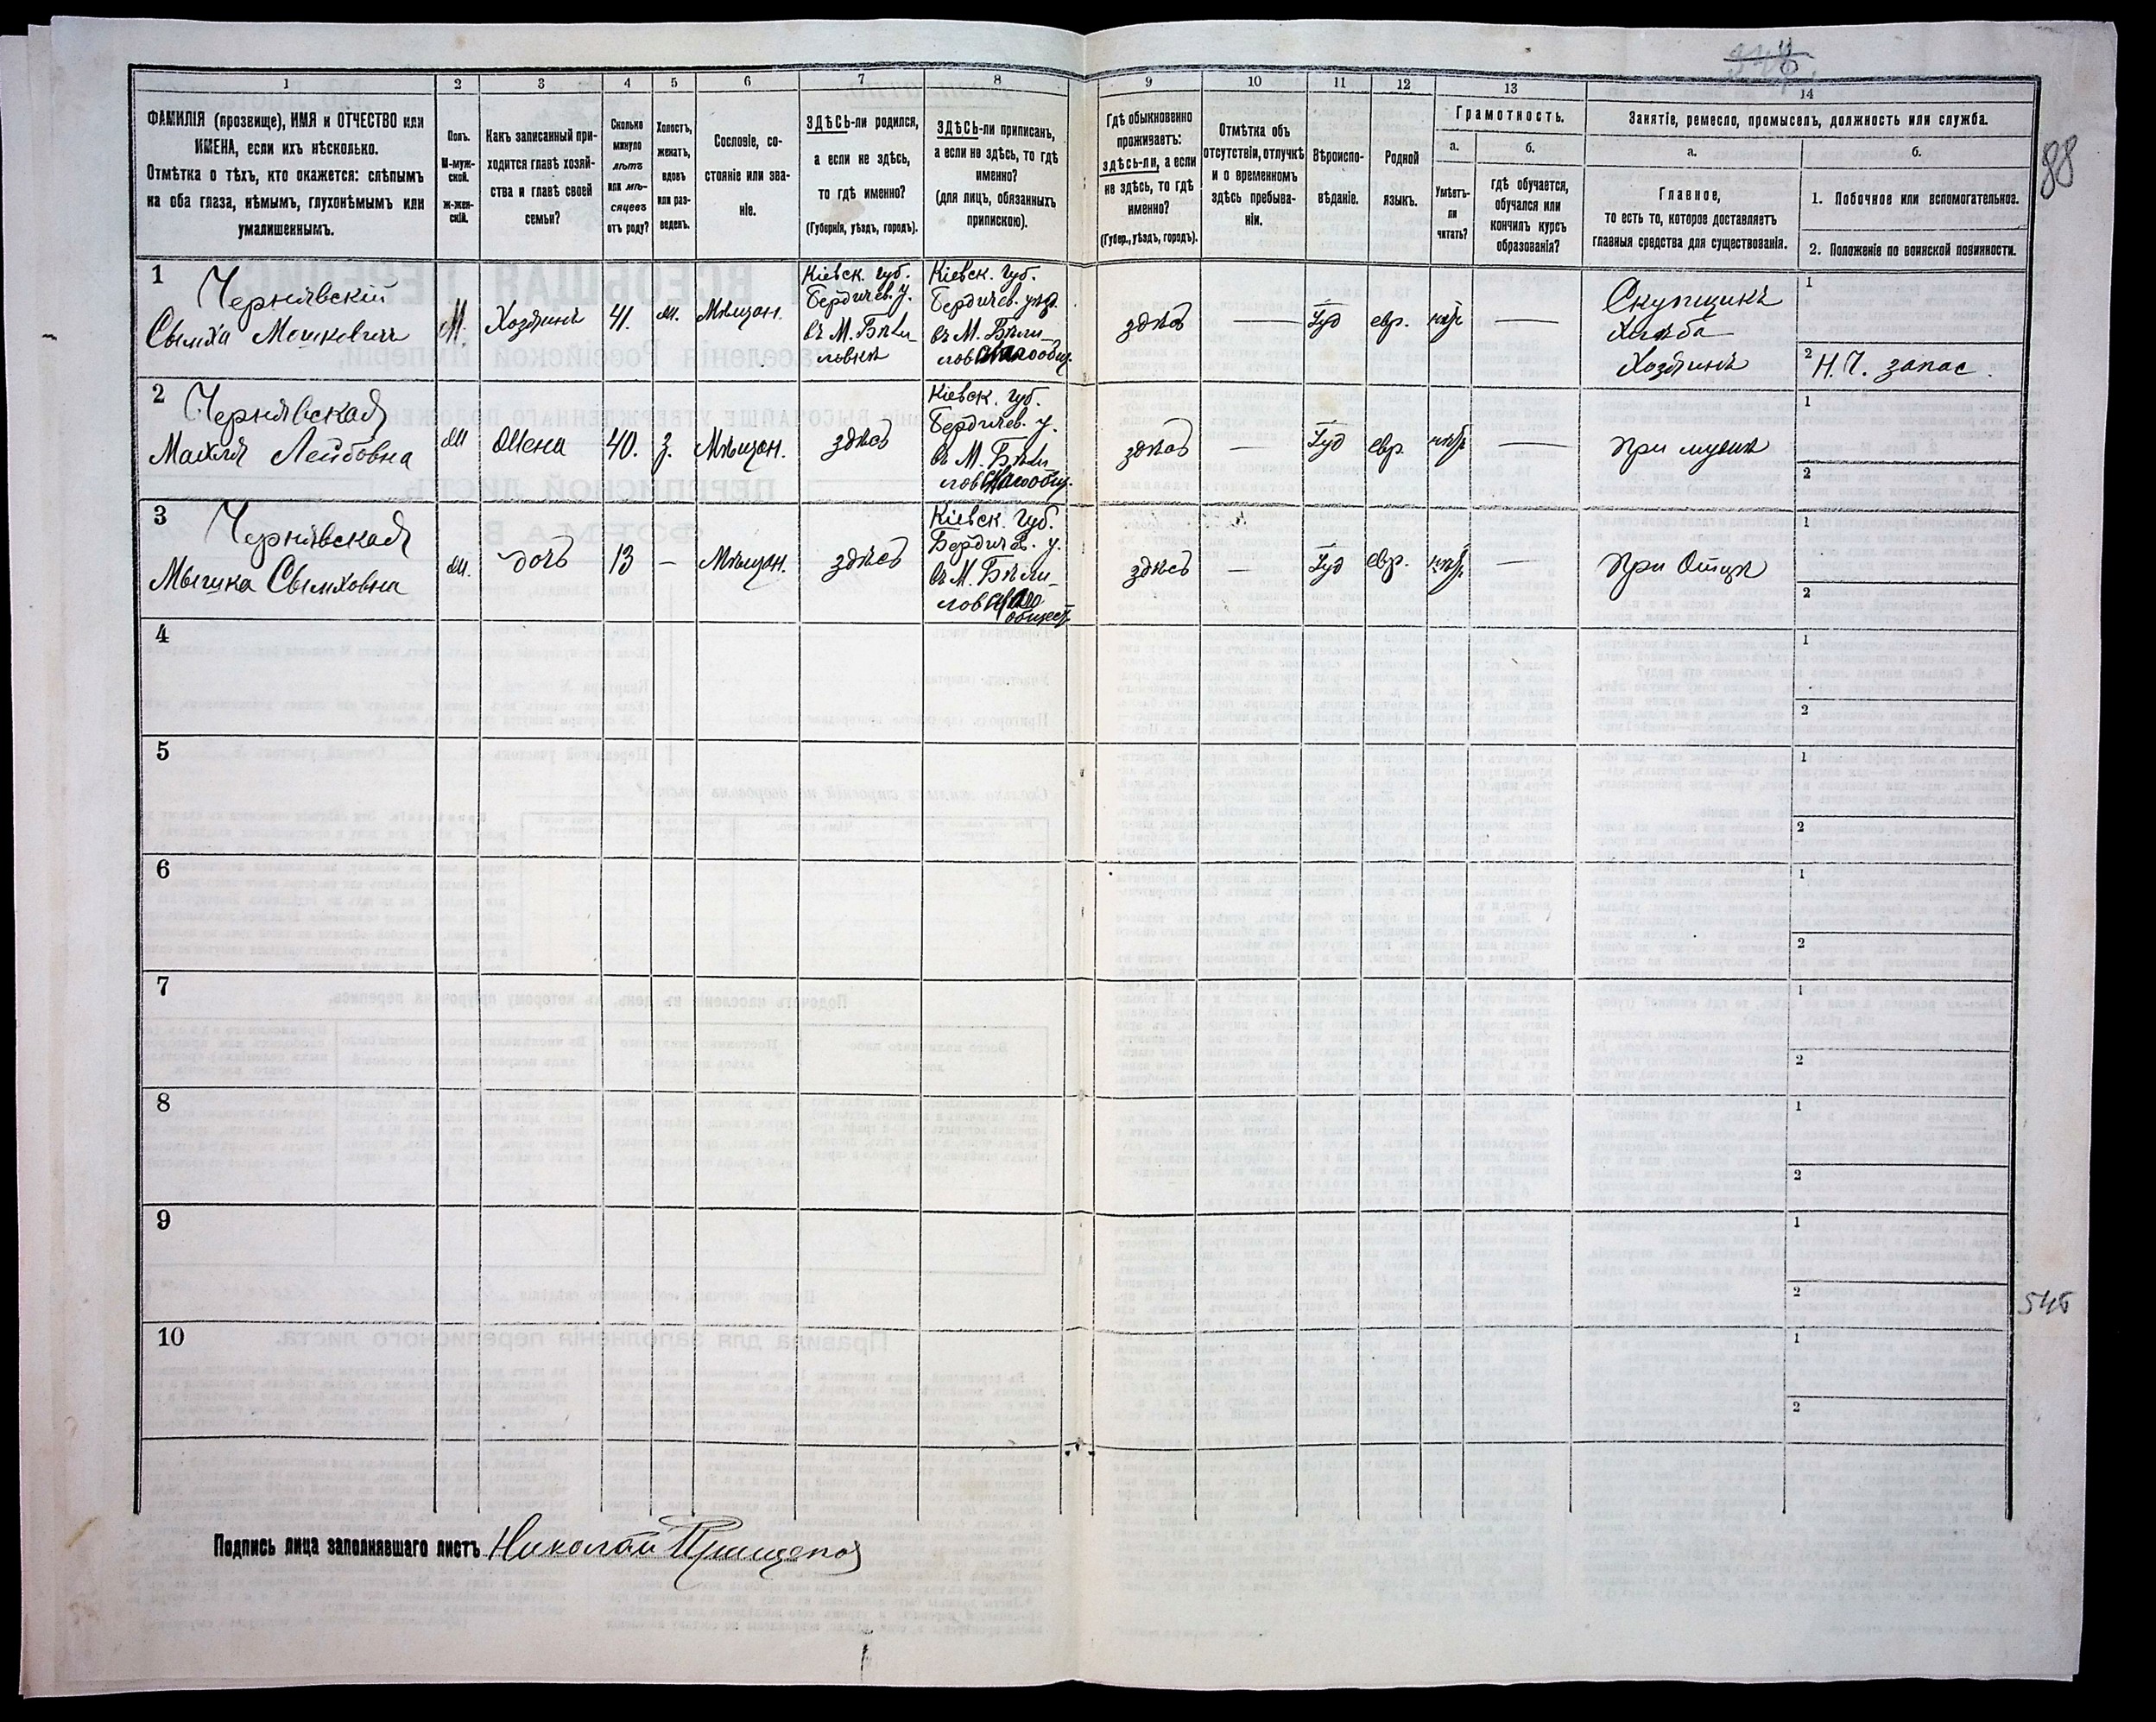 1 2 3 4 5 6 7 8 9 10 11 12 13 14
ФАМИЛІЯ (прозвище), ИМЯ и ОТЧЕСТВО или
ИМЕНА, если ихъ нѣсколько.
Отмѣтка о тѣхъ, кто окажется: слѣпымъ
на оба глаза, нѣмымъ, глухонѣмымъ или
умалишеннымъ.
Полъ.
М-муж-
ской.
Ж-жен-
скій.
Какъ записанный при-
ходится главѣ хозяй-
ства и главѣ своей
семьи?
Сколько
минуло
лѣтъ
или мѣ-
сяцевъ
отъ роду?
Холостъ,
женатъ,
вдовъ
или раз-
веденъ.
Сословіе, со-
стояніе или зва-
ніе.
ЗДѢСЬ-ли родился,
а если не здѣсь,
то гдѣ именно?
(Губернія, уѣздъ, городъ).
ЗДѢСЬ-ли приписанъ,
а если не здѣсь, то гдѣ
именно?
(для лицъ, обязанныхъ
припискою).
Гдѣ обыкновенно
проживаетъ:
здѣсь-ли, а если
не здѣсь, то гдѣ
именно?
(Губер., уѣздъ, городъ).
Отмѣтка объ
отсутствіи, отлучкѣ
и о временномъ
здѣсь пребыва-
ніи.
Вѣроиспо-
вѣданіе.
Родной
языкъ.
Грамотность.
а.
Умѣетъ-
ли
читать?
б.
гдѣ обучается,
обучался или
кончилъ курсъ
образованія?
Занятіе, ремесло, промыселъ, должность или служба.
а.
Главное,
то есть то, которое доставляетъ
главныя средства для существованія.
б.
1. Побочное или вспомогательное.
2. Положеніе по воинской повинности.
88
1
Чернявскій
Сымха Мошковичъ
М.
Хозяинъ
41.
Мѣщан.
Кіевск. губ.
Бердичев. у.
въ М. Бѣли-
ловкѣ
Кіевск. губ.
Бердичев. уѣзд.
въ М. Бѣли-
здѣсь
—
Іуд
евр.
—
Скупщикъ
Хлѣба
Хозяинъ
1
2 Н. Ч. запас.
2
Чернявская
Махля Лейбовна
Жена
40.
з.
Мѣщан.
здѣсь
Кіевск. губ.
Бердичев. у.
въ М. Бѣли-
здѣсь
—
Іуд
евр.
—
при мужѣ
1
2
3
Чернявская
Сымховна
дочь
13
—
Мѣщан.
здѣсь
Кіевск. губ.
Бердич. у.
въ М. Бѣли-
здѣсь
—
Іуд
евр.
—
при Отцѣ
1
2
4
1
2
5
1
2
6
1
2
7
1
2
8
1
2
9
1
2
10
1
2
Подпись лица заполнявшаго листъ Николай Прищепов